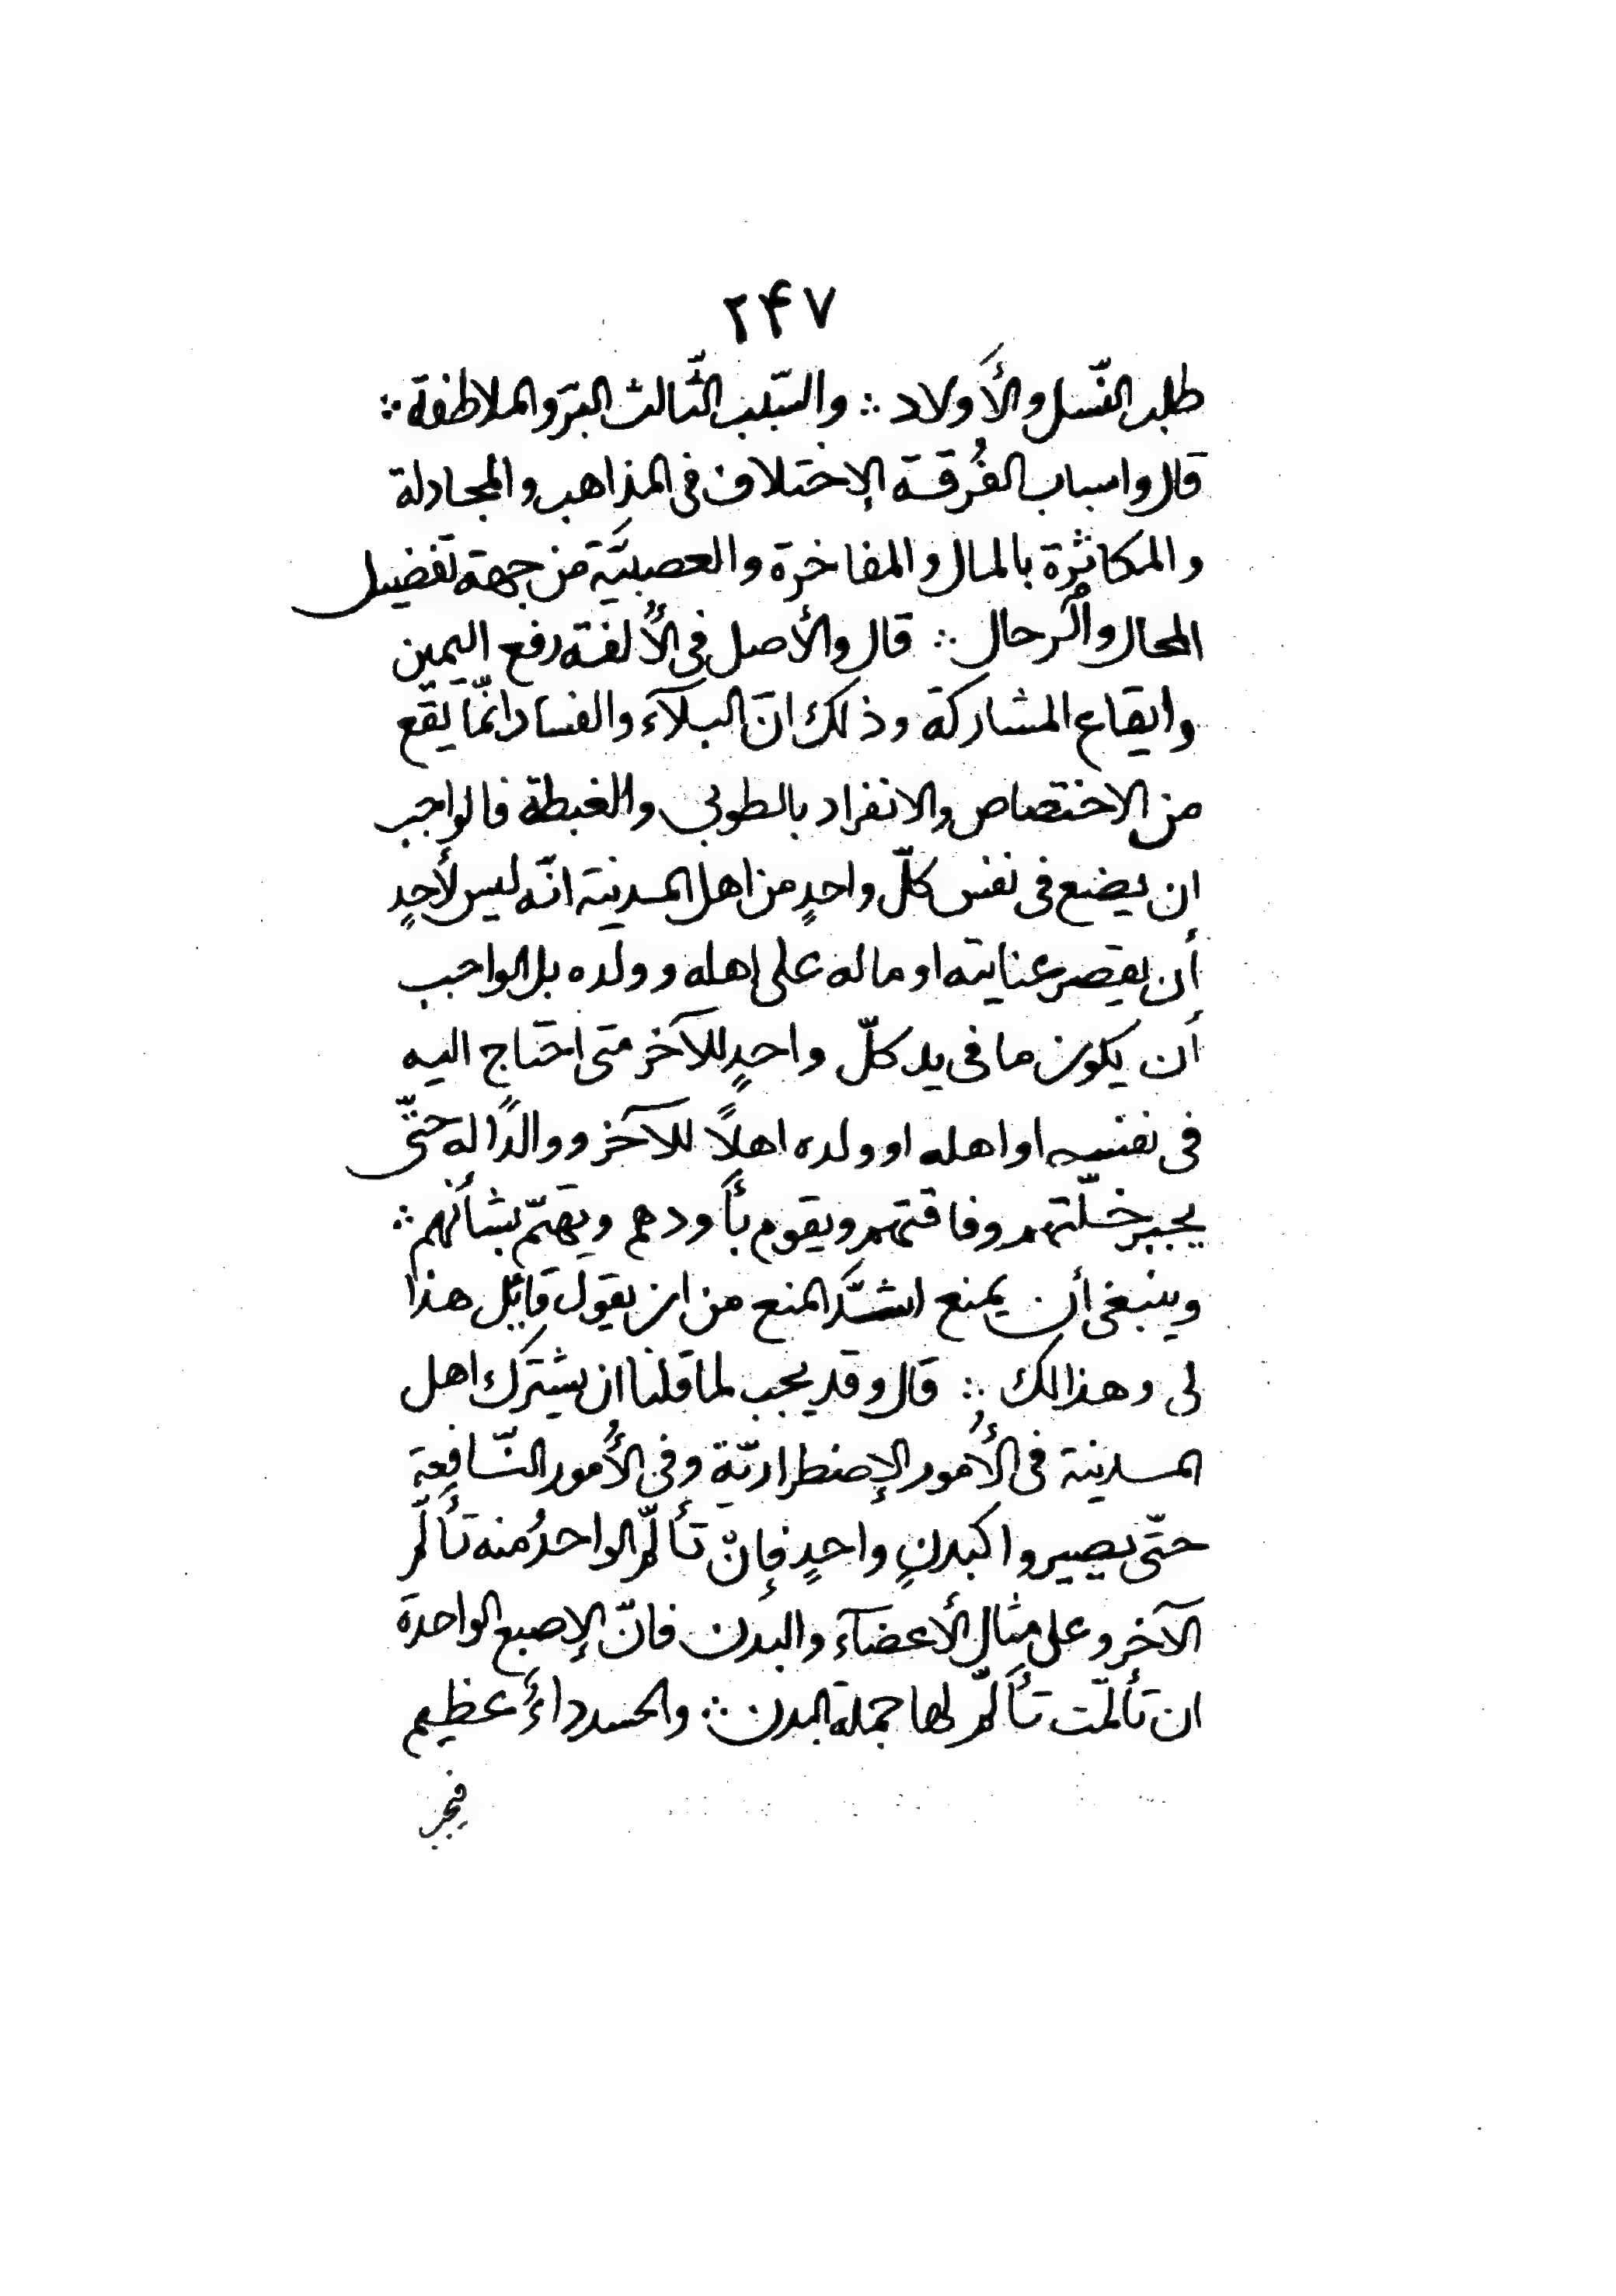 ۲۴۷
طلب النّسل والأَولاد ∴ والسّبب الثّالث البرّ والملاطفة ∴
قال واسباب الفُرقة الإختلاف فى المذاهب والمجادلة
والمكاثرة بالمال والمفاخرة والعصبيَّة من جهة تفضيل
المحال والرحال ∴ قال والأصل فى الأُلفة رفع اليمين
وايقاع المشاركة وذلك انّ البلآء والفساد انّما يقع
من الاختصاص والانفراد بالطوبى والغبطة فالواجب
ان يضع فى نفس كلّ واحدٍ من اهل المدينة انّه ليس لأحدٍ
أن يقصر عنايته او ماله على اهله وولده بل الواجب
أن يكون ما فى يد كلّ واحدٍ للآخر متى احتاج اليه
فى نفسه او اهله او ولده اهلاً للآخر ووالدًا له حتّى
يجبر خلّتهم وفاقتهم ويقوم بأَودهم ويهتمّ بشأنهم ∴
وينبغى أن يمنع اشدَّ المنع من ان يقول قائل هذا
لى وهذا لك ∴ قال وقد يجب لما قلنا ان يشترك اهل
المدينة فى الأُمور الإضطراريّة وفى الأُمور النّافعة
حتّى يصيروا كبدنٍ واحدٍ فإنْ تألّم الواحدُ منه تألّم
الآخر وعلى مثال الأعضآء والبدن فانّ الإصبع الواحدة
ان تألمّت تألّم لها جملة البدن ∴ والحسد داءٌ عظيم
فيجب